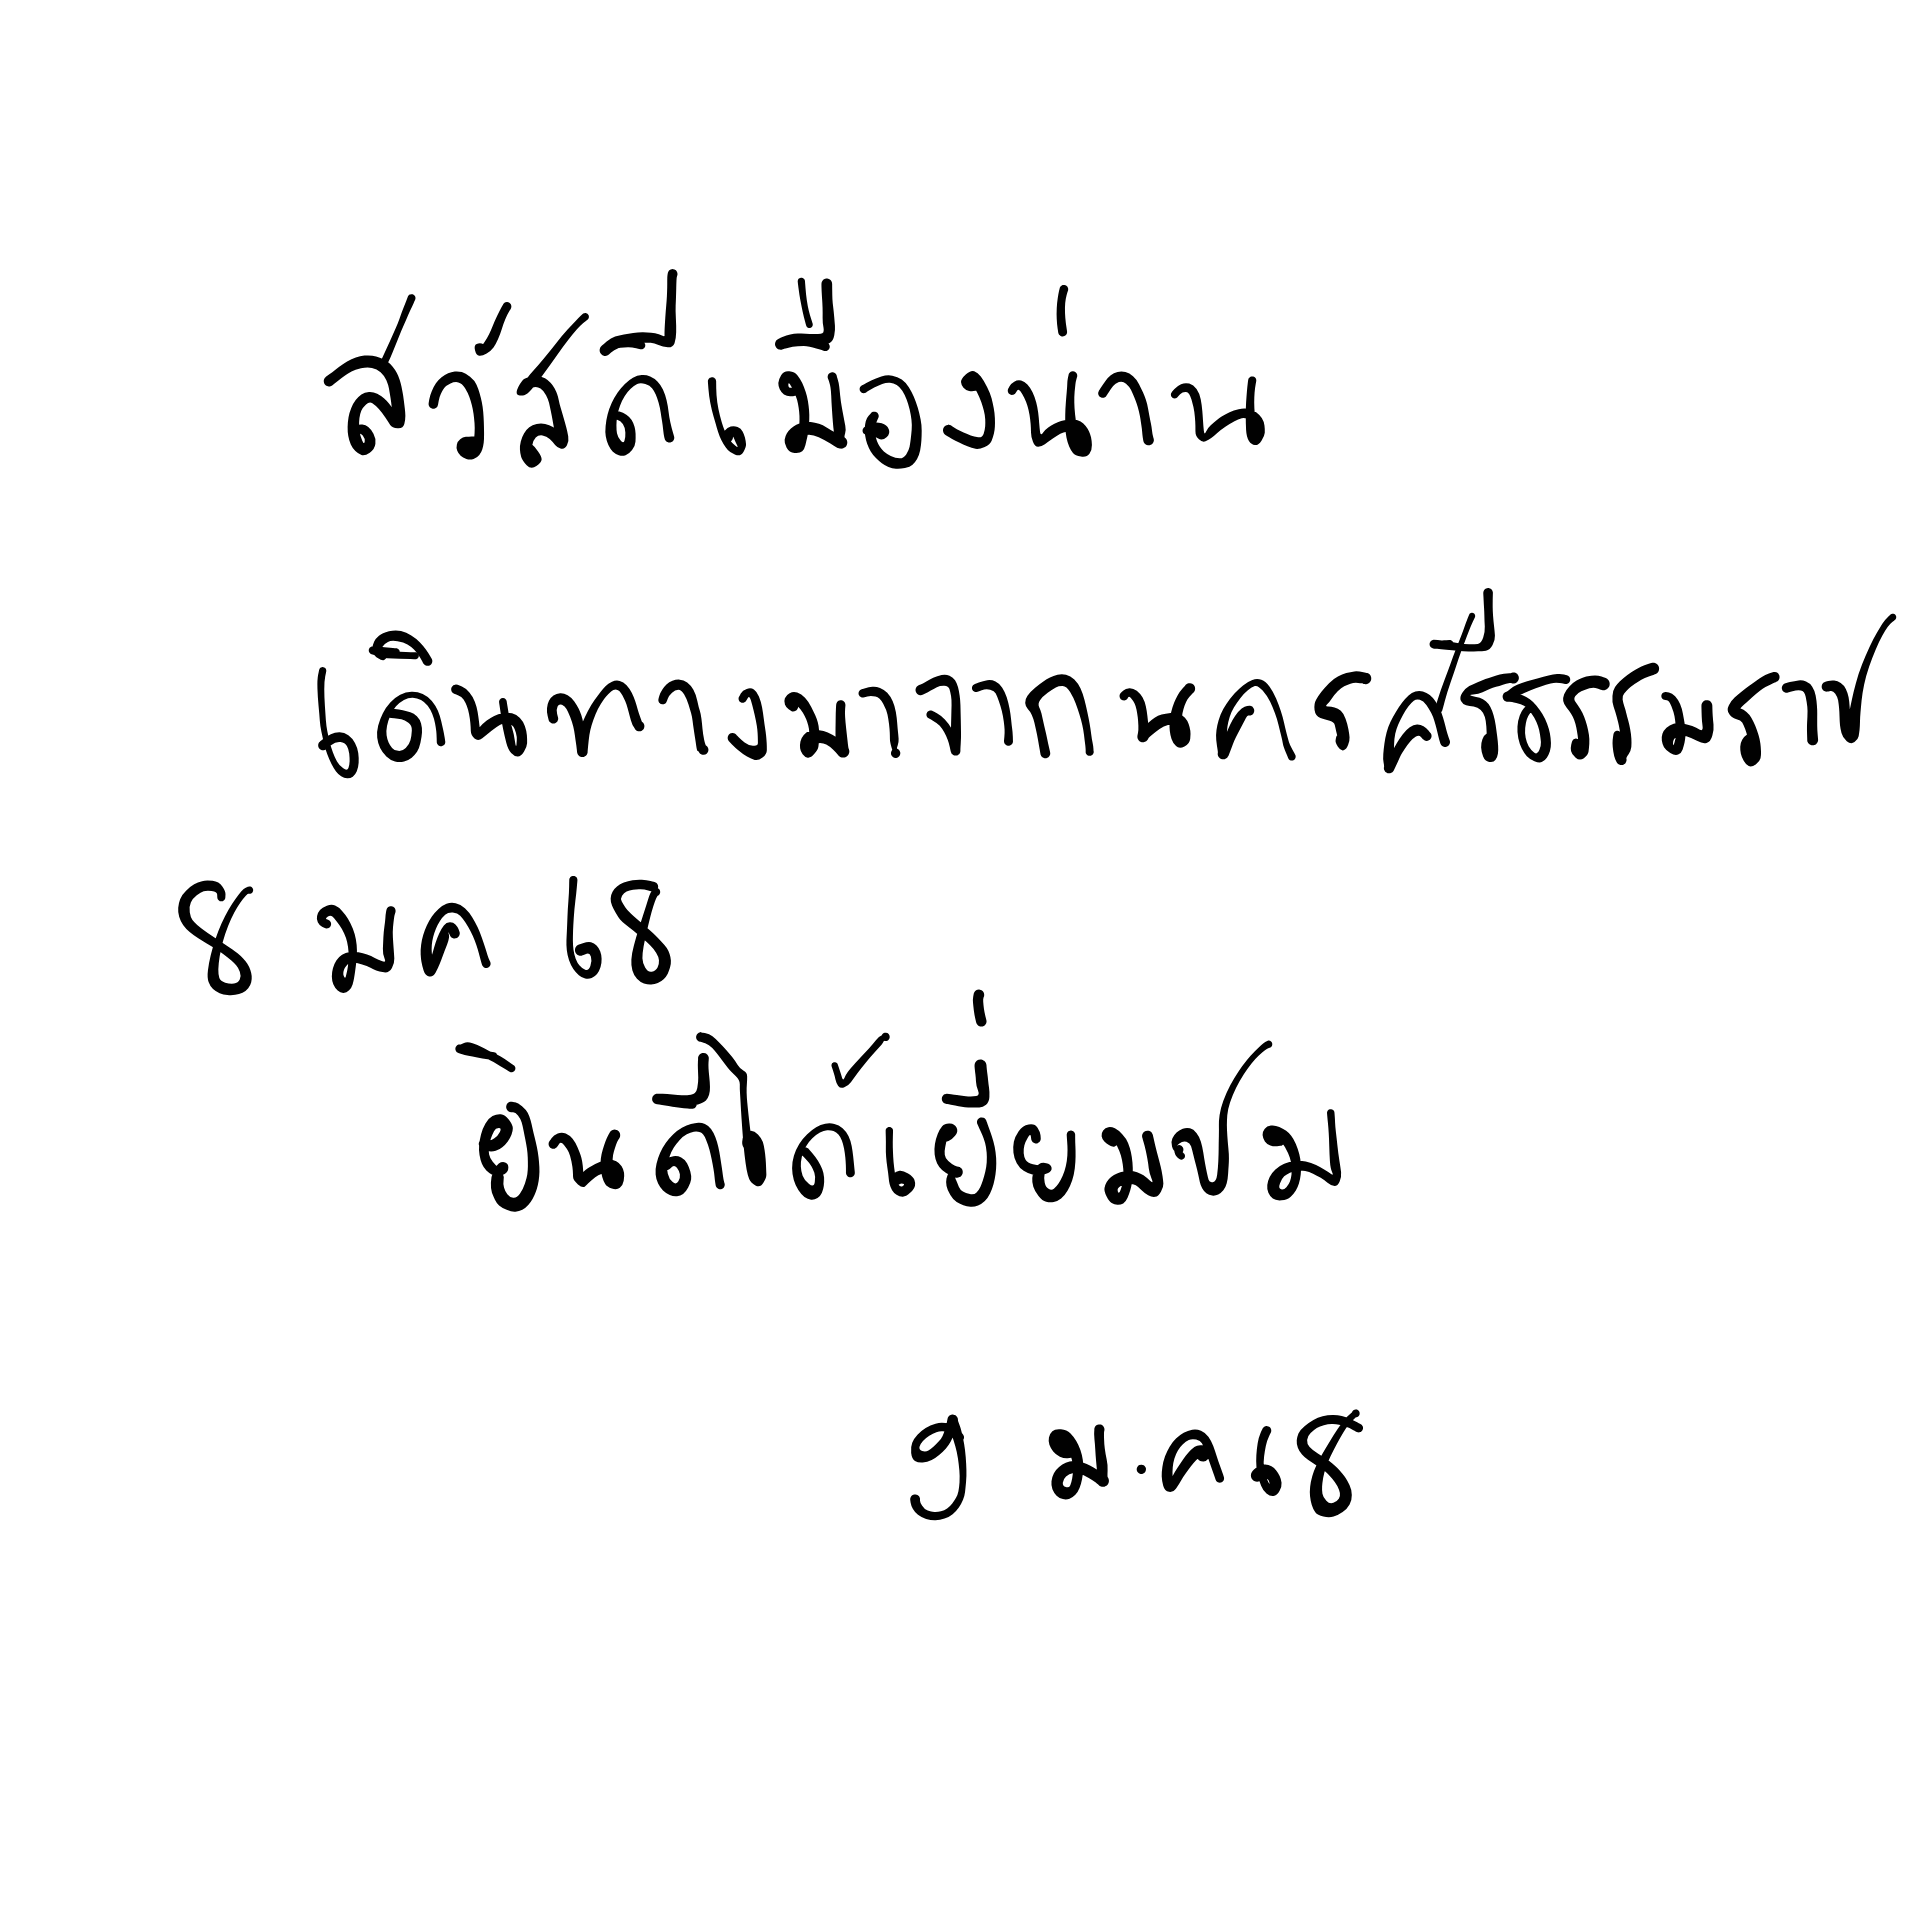 สวัสดีเมืองน่าน
เดินทางมาจากนครศรีธรรมราช
8 มค 68
ยินดีได้เยี่ยมชม
9 ม.ค 68